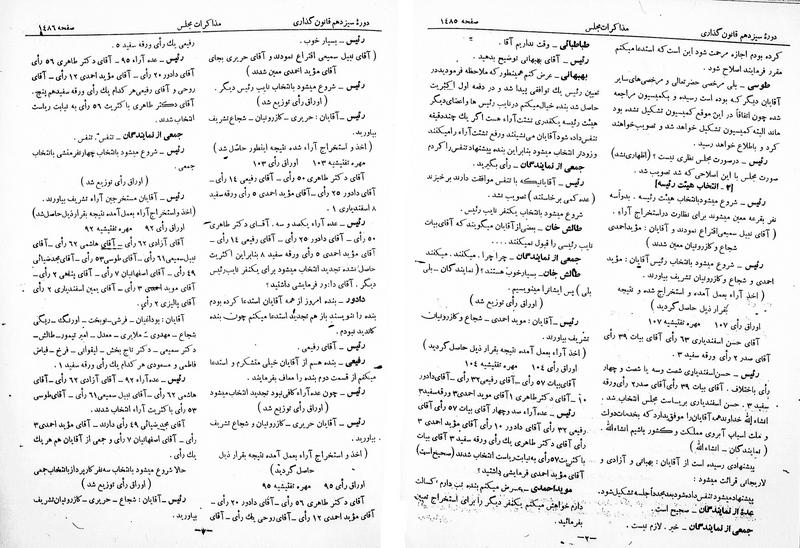 دورهٔ سیزدهم قانون گذاری
مذاکرات مجلس
صفحه ۱۴۸۵
کرده بودم اجازه مرحمت شود این است که استدعا میکنم
مقرر فرمایند اصلاح شود.
طوسی ـ بلی مرخصی حضرتعالی و مرخصی‌های سایر
آقایان دیگر که بوده است رسیده و بکمیسیون مراجعه
شده چون اتفاقاً در این موقع کمیسیون تشکیل نشده بود
ماند البته کمیسیون تشکیل خواهد شد و تصویب خواهند
کرد و باطلاع خواهد رسید.
رئیس ـ در صورت مجلس نظری نیست؟ (اظهاری نشد)
صورت مجلس با این اصلاحی که شد تصویب شد.
[۳ - انتخاب هیئت رئیسه]
رئیس ـ شروع میشود بانتخاب هیئت رئیسه. بدواً سه
نفر بقرعه معین میشوند برای نظارت در استخراج آراء.
(آقای نبیل سمیعی اقتراع نمودند و آقایان: مؤید احمدی
شجاع و کازرونیان معین شدند)
رئیس ـ شروع میشود بانتخاب رئیس آقایان: مؤید
احمدی و شجاع و کازرونیان تشریف بیاورند.
(اخذ آراء بعمل آمده و استخراج شده و نتیجه
بقرار ذیل حاصل گردید)
اوراق رأی ۱۰۷ مهره تفتیشیه ۱۰۷
آقای حسن اسفندیاری ۶۳ رأی آقای بیات ۳۹ رأی
آقای صدر ۲ رأی ورقه سفید ۳.
رئیس ـ حسن اسفندیاری شصت و سه یا شصت و چهار
رأی باختلاف. آقای بیات ۳۹ رأی آقای صدر ۲ رأی ورقه
سفید ۳. حسن اسفندیاری بریاست مجلس انتخاب شد.
انشاءالله خداوند همه آقایان را موفق بدارد که بخدمات دولت
و ملت اسباب آبروی مملکت و کشور باشیم انشاءالله
(نمایندگان ـ انشاءالله)
پیشنهادی رسیده است از آقایان: بهبهانی و آزادی و
لاریجانی قرائت میشود:
پیشنهاد میشود تنفس داده شود بعد مجدداً جلسه تشکیل شود.
عدهٔ از نمایندگان ـ صحیح است.
جمعی از نمایندگان ـ خیر. لازم نیست.
طباطبائی ـ وقت نداریم آقا.
رئیس ـ آقای بهبهانی توضیح بدهید.
بهبهانی ـ عرض کنم همینطور که ملاحظه فرمودید در
تعیین رئیس یک توافقی پیدا شد و در دفعه اول اکثریت
حاصل شد بنده خیال میکنم در نایب رئیس ها و اعضای دیگر
هیئت رئیسه یکقدری تشتت آراء هست اگر یک چند دقیقه
تنفس داده شود آقایان می‌نشینند و رفع تشتت آراء را میکنند
و زودتر انتخاب میشود بنابراین بنده پیشنهاد تنفس را کردم
جمعی از نمایندگان ـ رأی بگیرید.
رئیس ـ آقایانیکه با تنفس موافقت دارند برخیزند
(عده کمی برخاستند) تصویب نشد.
شروع میشود بانتخاب یکنفر نایب رئیس.
طالش خان ـ بعضی از آقایان میگویند که آقای بیات
نایب رئیسی را قبول نمیکنند....
جمعی از نمایندگان ـ چرا چرا. میکنند. میکنند
طالش خان ـ بسیار خوب هستند؟ (نمایندگان ـ بلی
بلی) پس ایشان را مینویسیم.
(اوراق رأی توزیع شد)
رئیس ـ آقایان: موید احمدی ـ شجاع و کازرونیان
تشریف بیاورند.
(اخذ آراء بعمل آمده نتیجه بقرار ذیل حاصل گردید)
اوراق رأی ۱۰۴ مهره تفتیشیه ۱۰۴
آقای بیات ۵۷ رأی ـ آقای رفیعی ۳۲ رأی ـ آقای دادور
۱۰ ـ آقای دکتر طاهری ۱ آقای موید احمدی ۳ ورقه سفید ۳
رئیس ـ عده آراء صد و چهار آقای بیات ۵۷ رأی آقای
رفیعی ۳۲ رأی آقای دادور ۱۰ رأی آقای موید احمدی ۳
رأی آقای دکتر طاهری یک رأی ورقه سفید ۳ آقای بیات
با کثریت ۵۷ رأی به نیابت ریاست انتخاب شدند (صحیح است)
آقای موید احمدی فرمایشی داشتید؟
موید احمدی ـ عرض میکنم بنده تب دارم کسالت
دارم خواهش میکنم یکنفر دیگر را برای استخراج تعیین
بفرمائید.
ـ ۲ ـ
دورهٔ سیزدهم قانون گذاری
مذاکرات مجلس
صفحه ۱۴۸۶
رئیس ـ بسیار خوب.
(آقای نبیل سمیعی اقتراع نمودند و آقای حریری بجای
آقای مؤید احمدی معین شدند)
رئیس ـ شروع میشود بانتخاب نایب رئیس دیگر.
(اوراق رأی توزیع شد)
رئیس ـ آقایان: حریری ـ کازرونیان ـ شجاع تشریف
بیاورید.
(اخذ و استخراج آراء شده نتیجه اینطور حاصل شد)
مهره تفتیشیه ۱۰۳ اوراق رأی ۱۰۳
آقای دکتر طاهری ۵۰ رأی ـ آقای رفیعی ۱۴ رأی ـ
آقای دادور ۲۵ رأی ـ آقای مؤید احمدی ۵ رأی ورقه سفید
۸ اسفندیاری ۱.
رئیس ـ عده آراء یکصد و سه. آقای دکتر طاهری
۵۰ رأی ـ آقای دادور ۲۵ رأی ـ آقای رفیعی ۱۴ رأی ـ
آقای مؤید احمدی ۵ رأی ورقه سفید ۸ بنابراین اکثریت
حاصل نشده تجدید انتخاب میشود برای یکنفر نایب رئیس
دیگر. آقای دادور فرمایشی داشتید؟
دادور ـ بنده امروز از همه آقایان استدعا کرده بودم
بنده را ننویسند باز هم تجدید استدعا میکنم چون بنده
کاندید نبودم.
رئیس ـ آقای رفیعی.
رفیعی ـ بنده هم از آقایان خیلی متشکرم و استدعا
میکنم از قسمت دوم بنده را معاف بفرمایند.
رئیس ـ چون عده آراء کافی نبود تجدید انتخاب میشود
(اوراق رأی توزیع شد)
رئیس ـ آقایان حریری ـ کازرونیان و شجاع تشریف
بیاورید.
(اخذ و استخراج آراء بعمل آمده نتیجه بقرار ذیل
حاصل گردید)
اوراق رأی ۹۵ مهره تفتیشیه ۹۵
آقای دکتر طاهری ۵۶ رأی ـ آقای دادور ۲۰ رأی ـ
آقای مؤید احمدی ۱۲ رأی ـ آقای روحی یک رأی ـ آقای
رفیعی یك رأی ورقه سفید ۵.
رئیس ـ عده آراء ۹۵ ـ آقای دکتر طاهری ۵۶ رأی
آقای دادور ۲۰ رأی ـ آقای مؤید احمدی ۱۲ رأی ـ آقای
روحی و آقای رفیعی هر کدام یك رأی ورقه سفید هم پنج.
آقای دکتر طاهری با کثریت ۵۶ رأی به نیابت ریاست
انتخاب شدند.
جمعی از نمایندگان ـ تنفس. تنفس.
رئیس ـ شروع میشود بانتخاب چهار نفر منشی بانتخاب
جمعی.
(اوراق رأی توزیع شد)
رئیس ـ آقایان مستخرجین آراء تشریف بیاورند.
(اخذ و استخراج آراء بعمل آمده نتیجه بقرار ذیل حاصل شد)
اوراق رأی ۹۲ مهره تفتیشیه ۹۲
آقای آزادی ۶۲ رأی ـ آقای هاشمی ۶۲ رأی ـ آقای
نبیل سمیعی ۶۱ رأی ـ آقای طوسی ۵۳ رأی ـ آقای مجد ضیائی
۴۹ رأی ـ آقای اصفهانیان ۷ رأی ـ آقای پناهی ۲ رأی ـ
آقای موید احمدی ۳ رأی ـ آقای معین اسفندیاری ۲ رأی
آقای پالیزی ۲ رأی.
آقایان: بوداغیان ـ فرشی ـ نوبخت ـ اورنگ ـ ریگی
شجاع ـ مهدوی ـ ملایری ـ معدل ـ امیر تیمور ـ طالش ـ
دکتر سمیعی ـ دکتر تاج بخش ـ لیقوانی ـ فرخ ـ فیاض
فاطمی و مسعودی هر کدام یك رأی ورقه سفید ۱.
رئیس ـ عده آراء ۹۲ ـ آقای آزادی ۶۲ رأی ـ آقای
هاشمی ۶۲ رأی ـ آقای نبیل سمیعی ۶۱ رأی ـ آقای طوسی
۵۳ رأی با کثریت آراء انتخاب شدند.
آقای مجد ضیائی ۴۹ رأی دارند ـ آقای موید احمدی ۳
رأی ـ آقای اصفهانیان ۷ رأی و جمعی از آقایان هم هر یك
یك رأی.
حالا شروع میشود بانتخاب سه نفر کارپرداز بانتخاب جمعی
(اوراق رأی توزیع شد)
رئیس ـ آقایان: شجاع ـ حریری ـ کازرونیان تشریف
بیاورید.